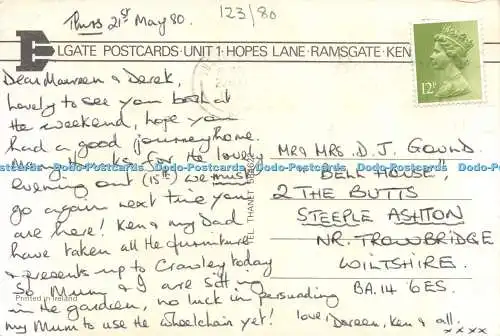 Thurs 21st May 80.
123/80
ELGATE POSTCARDS · UNIT 1 · HOPES LANE · RAMSGATE · KEN
12P
Dear Maureen & Derek,
Lovely to see you both at
the weekend, hope you
had a good journey home.
Many thanks for the lovely
evening out (15th) we must
go again next time you
are here! Ken & my Dad
have taken all the furniture
& presents up to Crawley today
So Mum & I are sitting
in the garden, no luck in persuading
my Mum to use the wheelchair yet!
love, Doreen, Ken & all.
xxxx
MR & MRS. D. J. GOUND
"BELL HOUSE",
2 THE BUTTS
STEEPLE ASHTON
NR. TROWBRIDGE
WILTSHIRE.
BA.14 6ES.
TEL. THANET
Printed in Ireland
Dodo-Postcards Dodo-Postcards Dodo-Postcards Dodo-Postcards Dodo-Postcards